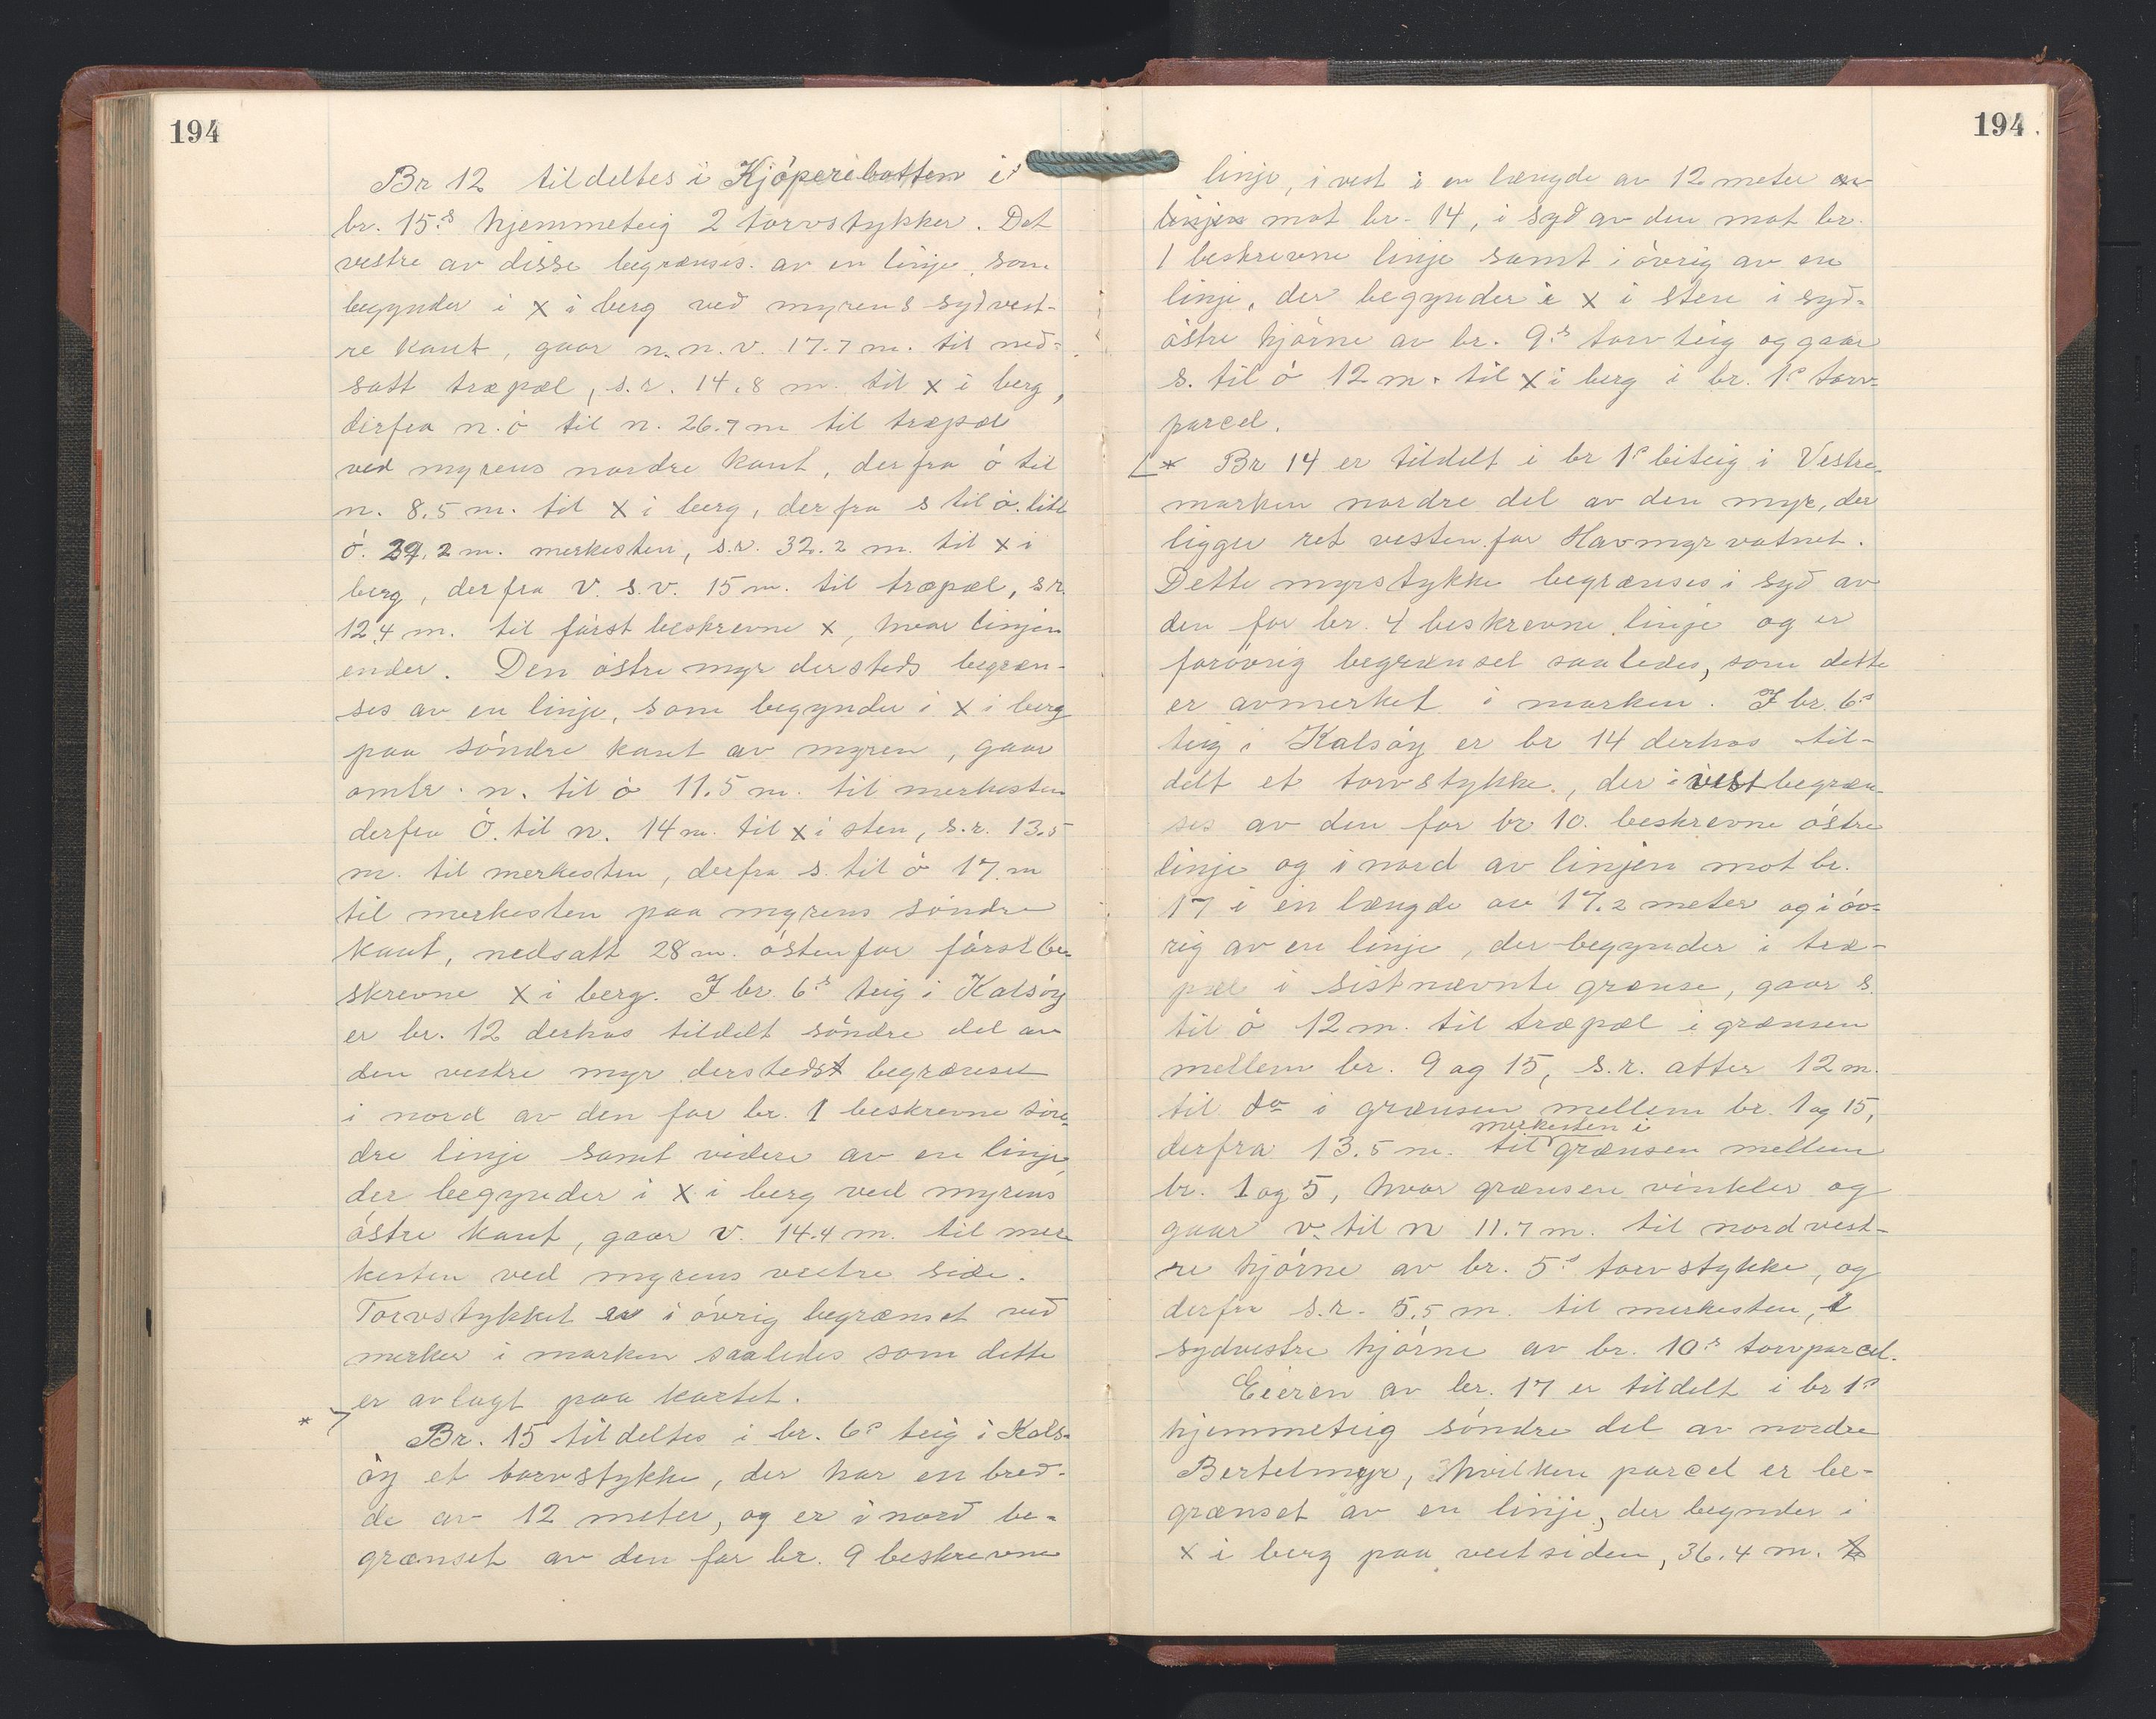 194
Br 12 tildeltes i Kjöperibotten i
br. 15.s hjemmeteig 2 torvstykker. Det
vestre av disse begrænses av en linje, som
begynder i x i berg ved myrens sydvest-
re kant, gaar n.n.v. 17.7 m. til ned-
satt træpæl, s.r. 14.8 m. til x i berg,
derfra n.ö til n. 26.7 m til træpæl
ved myrens nordre kant, derfra ö til
n. 8.5 m. til x i berg, derfra s til ö. litt
ö. 29.2 m. merkesten, s.r. 32.2 m. til x i
berg, derfra v.s.v. 15 m. til træpæl, s.r.
12.4 m. til först beskrevne x, hvor linjen
ender. Den östre myr dersteds begræn-
ses av en linje, som begynder i x i berg
paa söndre kant av myren, gaar
omtr. n. til ö 11.5 m. til merkesten
derfra Ö. til n. 14 m. til x i sten, s.r. 13.5
m. til merkesten, derfra s. til ö 17 m
til merkesten paa myrens söndre
kant, nedsatt 28 m. östenfor först be-
skrevne x i berg. I br. 6.s teig i Kalsöy
er br. 12 derhos tildelt söndre del av
den vestre myr dersteds begrænset
i nord av den for br. 1 beskrevne sön-
dre linje samt videre av en linje,
der begynder i x i berg ved myrens
östre kant, gaar v. 14.4 m. til mer-
kesten ved myrens vestre side.
Torvstykket er i övrig begrænset ved
merker i marken saaledes som dette
er avlagt paa kartet.
* 7
Br. 15 tildeltes i br. 6s teig i Kals-
öy et torvstykke, der har en bred-
de av 12 meter, og er i nord be-
grænset av den for br. 9 beskrevne
194.
linje, i vest i en længde av 12 meter av
linjen mot br. 14, i syd av den mot br.
1 beskrevne linje samt i övrig av en
linje, der begynder i x i sten i syd-
östre hjörne av br. 9.s torvteig og gaar
s. til ö 12 m. til x i berg i br. 1s torv-
parcel.
* Br 14 er tildelt i br 1s biteig i Vestre-
marken nordre del av den myr, der
ligger ret vesten for Havmyrvatnet.
Dette myrstykke begrænses i syd av
den for br. 4 beskrevne linje og er
forövrig begrænset saaledes, som dette
er avmerket i marken. I br. 6s
teig i Kalsöy er br 14 derhos til-
delt et torvstykke, der i vest begræn-
ses av den for br 10. beskrevne östre
linje og i nord av linjen mot br.
17 i en længde av 17.2 meter og i öv-
rig av en linje, der begynder i træ-
pæl i sistnævnte grænse, gaar s.
til ö 12 m. til træpæl i grænsen
mellem br. 9 og 15, s.r. atter 12 m.
til do i grænsen mellem br. 1 og 15,
merkesten i
derfra 13.5 m. til grænsen mellem
br. 1 og 5, hvor grænsen vinkler og
gaar v. til n 11.7 m. til nordvest-
re hjörne av br. 5.s torvstykke, og
derfra s.r. 5.5 m. til merkesten, i
sydvestre hjörne av br. 10.s torvparcel.
Eieren av br. 17 er tildelt i br 1s
hjemmeteig söndre del av nordre
Bertelmyr, hvilken parcel er be-
grænset av en linje, der begynder i
x i berg paa vestsiden, 36.4 m.